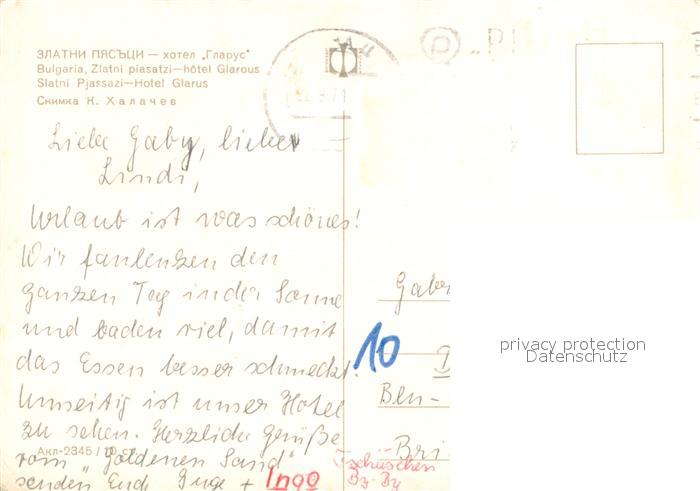 ЗЛАТНИ ПЯСЪЦИ — хотел „Гларус“
Bulgaria, Zlatni piasatzi—hôtel Glarous
Slatni Pjassazi—Hotel Glarus
Снимка К. Халачев
Liebe Gaby, lieber
Lindi,
Urlaub ist was schönes!
Wir faulenzen den
ganzen Tag in der Sonne
und baden viel, damit
das Essen besser schmeckt.
Umseitig ist unser Hotel
zu sehen. Herzliche Grüße
Акл-2345 / 10 ст.
vom „Goldenen Sand“
senden Euch Inge + Ingo
Tschüschen
By-By
10
Ben-
Bri
privacy protection
Datenschutz